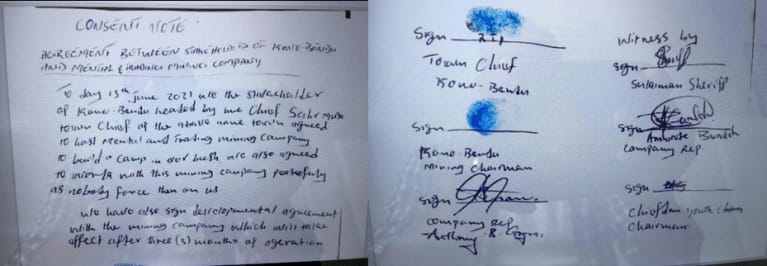 CONSENT NOTE
AGREEMENT BETWEEN STAKEHOLDERS OF KONO-BENDU
AND MENTAL & TRADING MINING COMPANY
To day 13th June 2021 we the stakeholder
of Kono-Bendu headed by me Chief Sahr Musa
town Chief of the above name town agreed
to host Mental and Trading mining Company
to build a Camp in our bush we also agreed
to work with this mining company peacefully
as nobody force than on us.
we have also sign developmental agreement
with the mining company which will take
effect after three (3) months of operation
Sign
Town Chief
Kono-Bendu
Sign
Kono-Bendu
Mining Chairman
Sign
Company Rep
Anthony B.
Witness by
Sign
Sulaiman Sheriff
Sign
Bundeh
Company Rep.
Sign
Chiefdom youth
Chairman